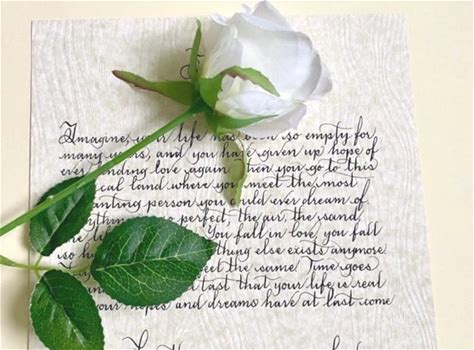 Imagine, your life has been so empty for
many years, and you have given up hope of
ever finding love again. Then you go to this
cal land where you meet the most
anting person you could ever dream of.
so perfect, the air, the sand,
You fall in love, you fall
thing else exists anymore.
eet the same. Time goes
last that your life is real
your hopes and dreams have at last come